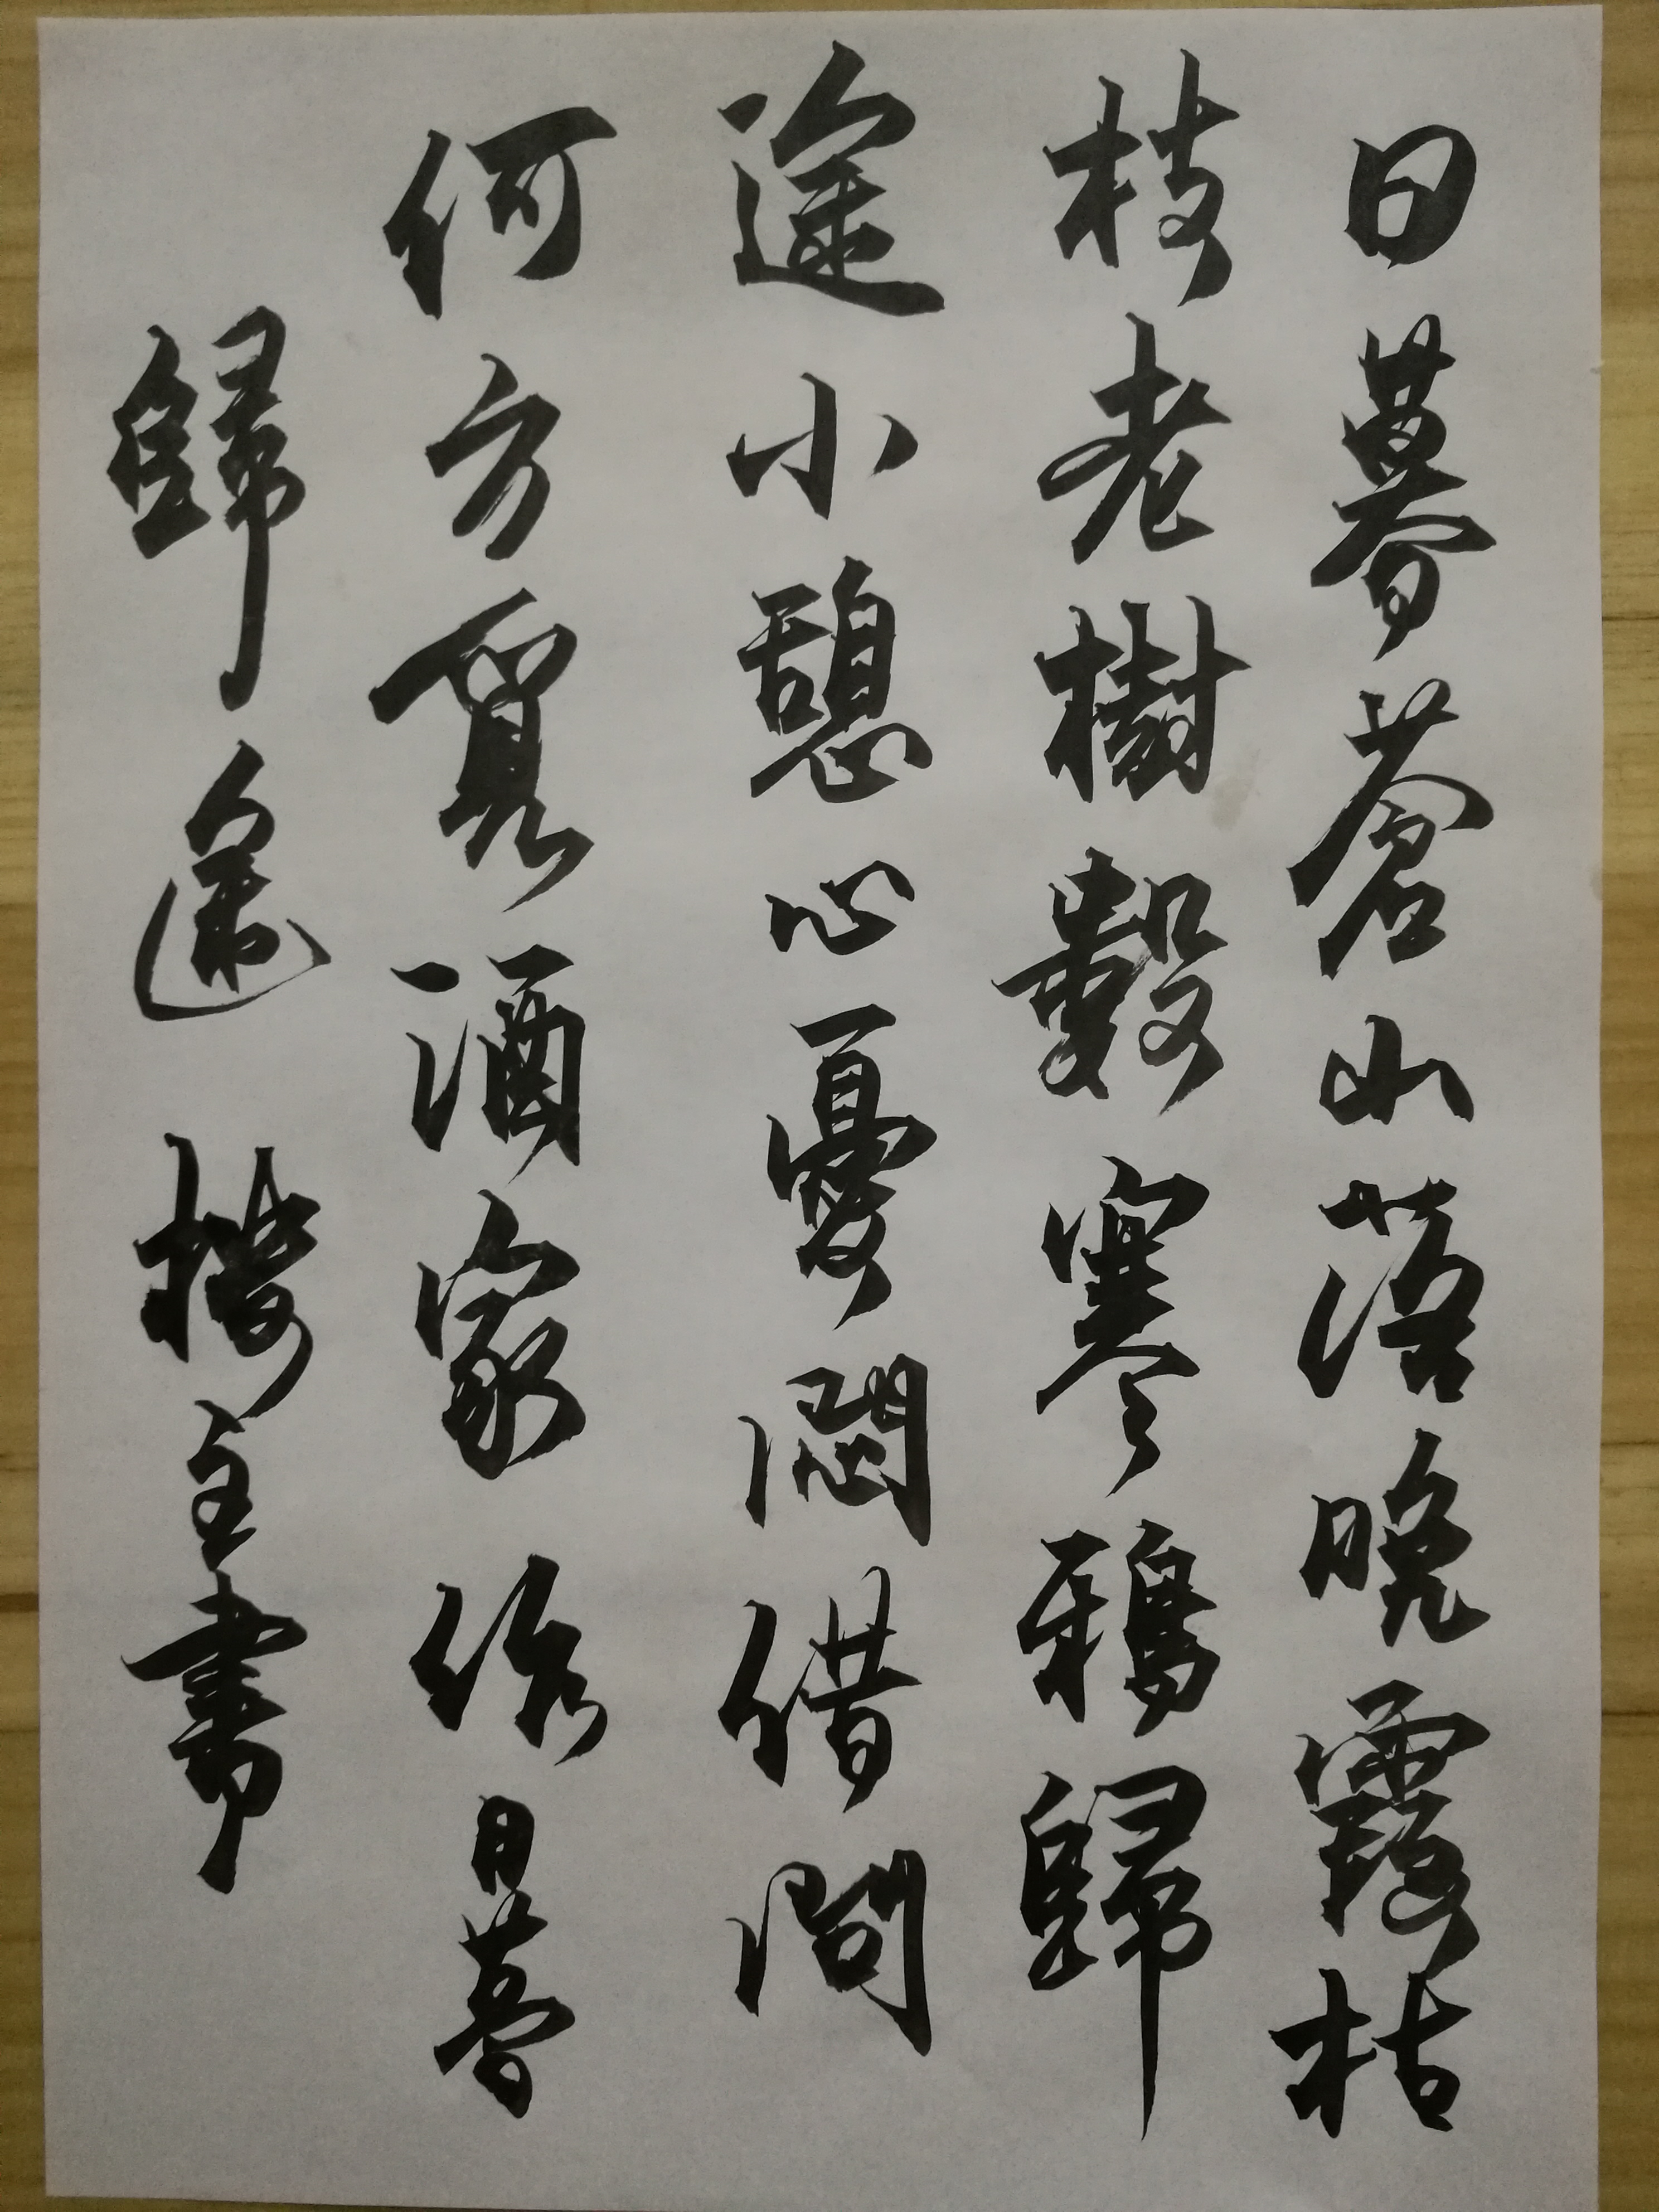 日暮蒼山落晚霞枯
枝老樹數寒鴉歸
途小憩心憂悶借問
何方買酒家 日暮
歸途 樓主書